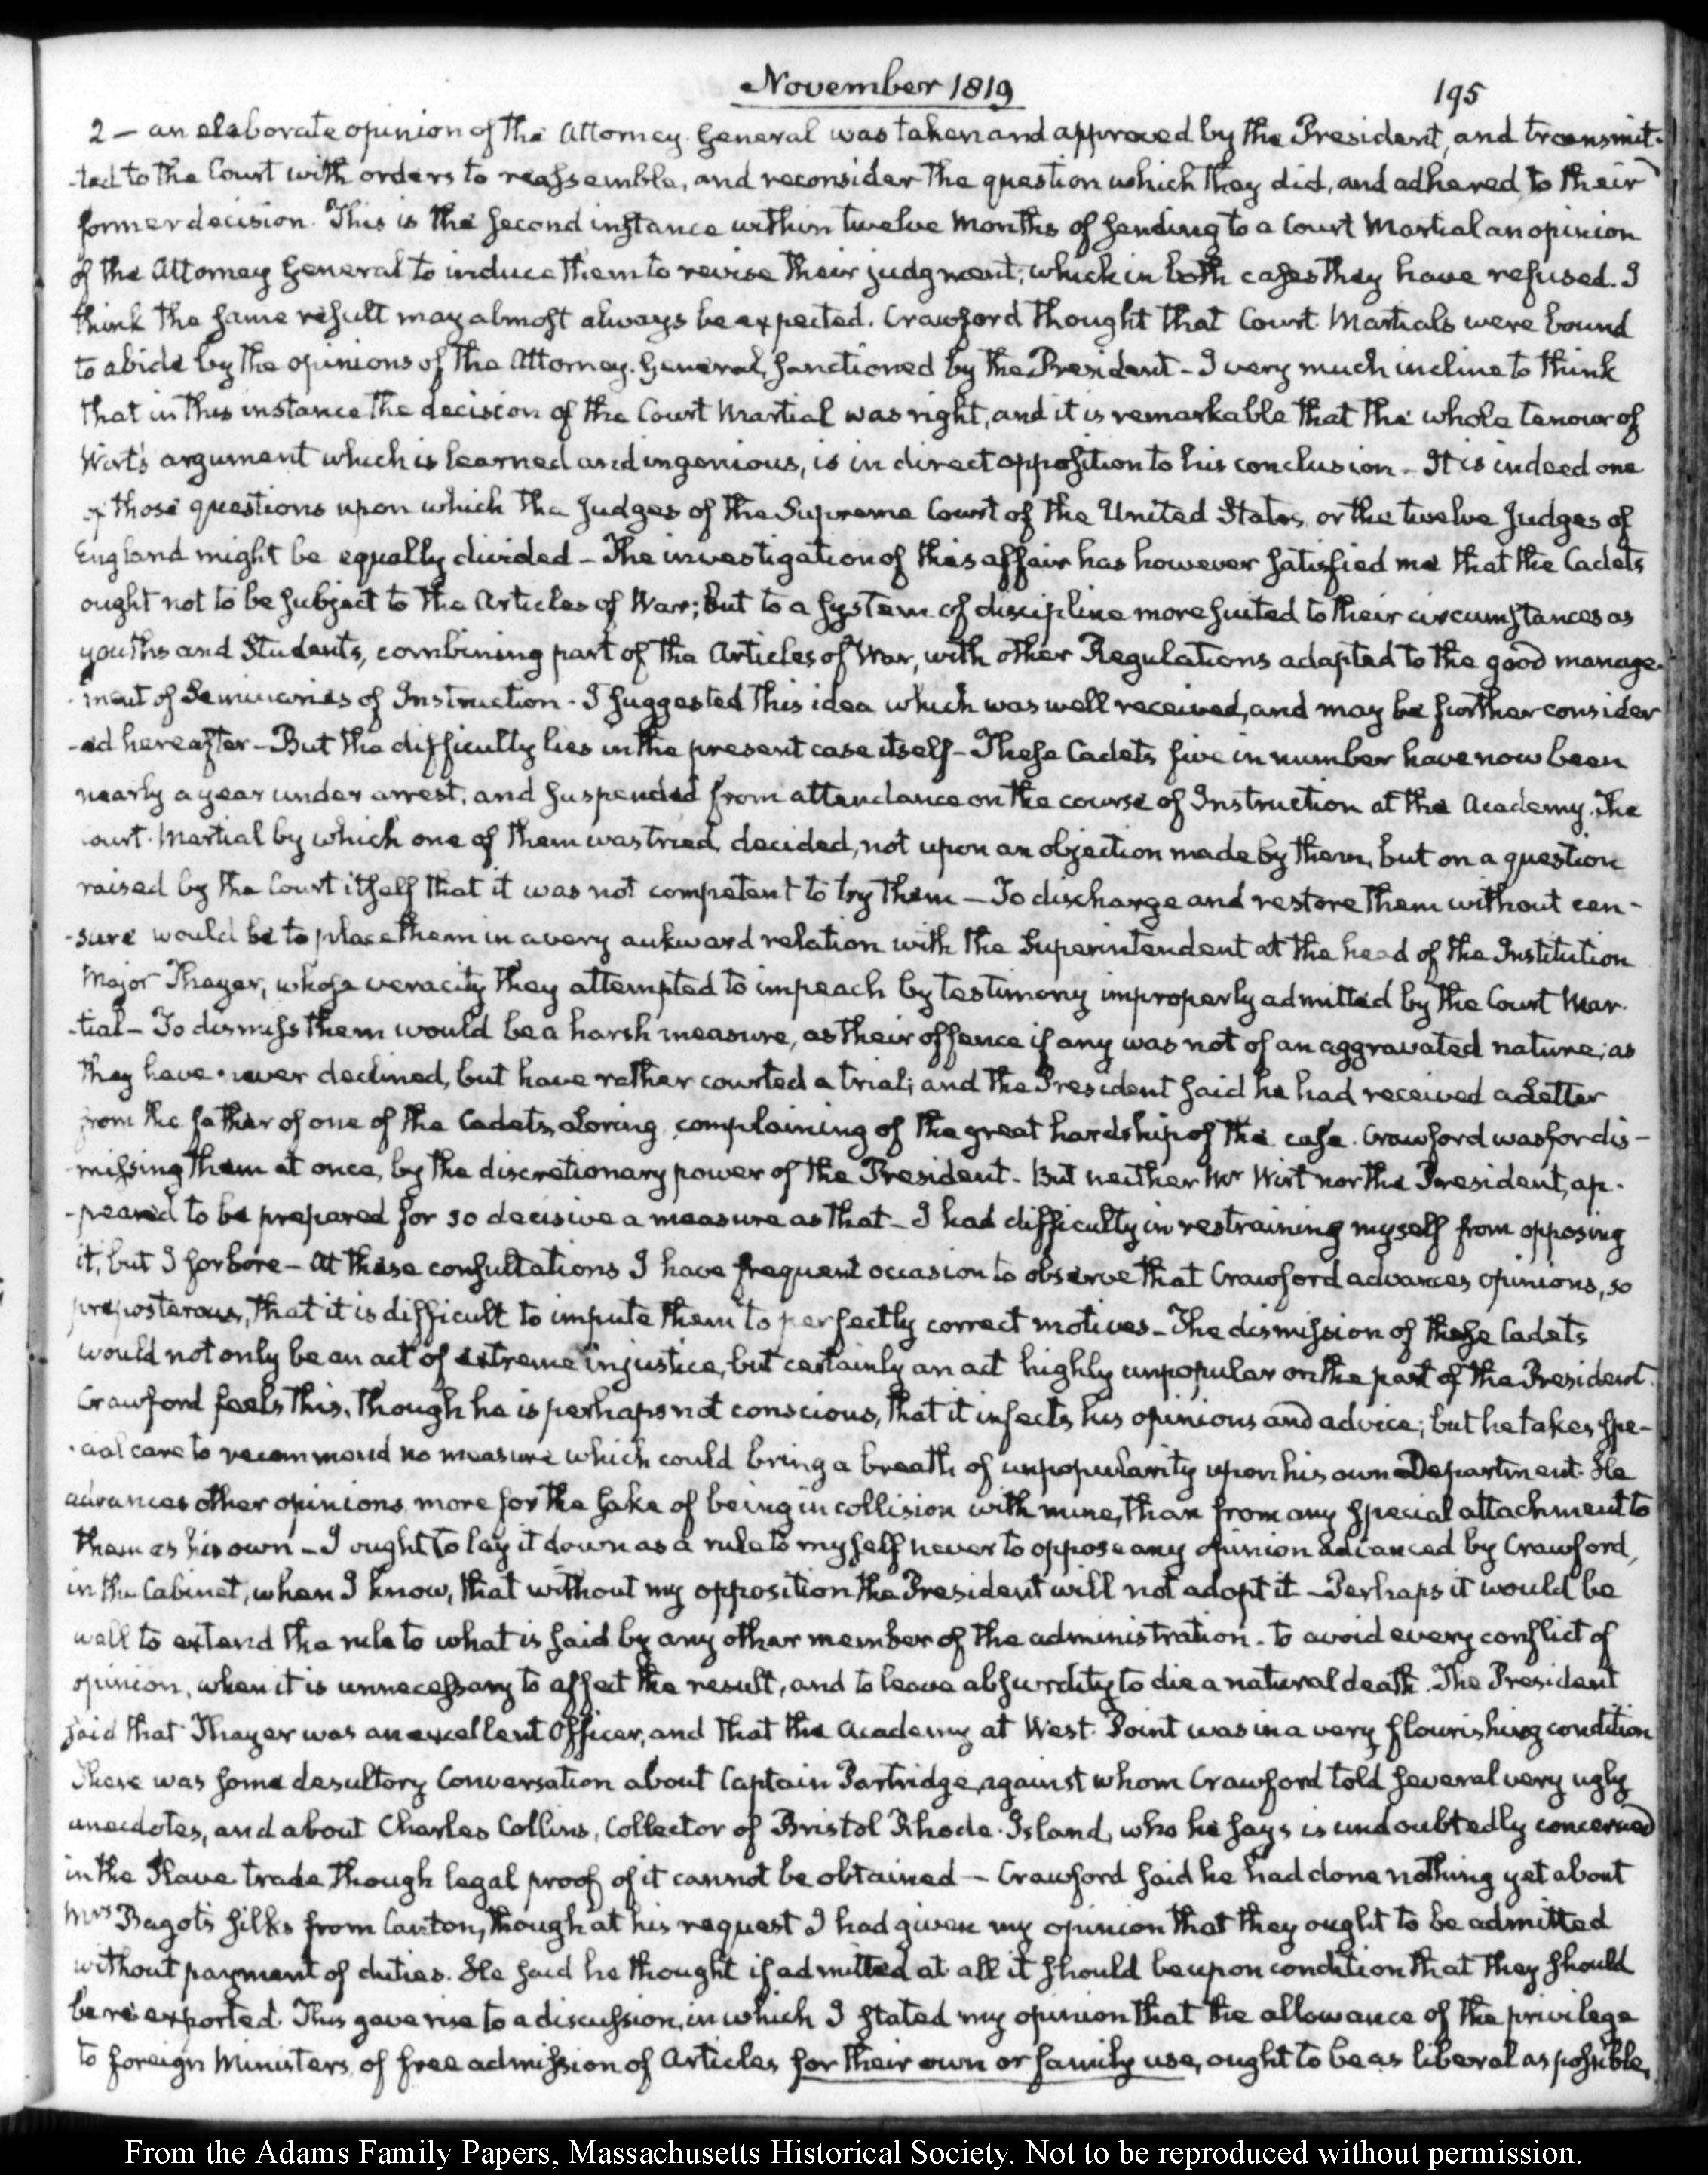 November 1819
195
2 — an elaborate opinion of the Attorney General was taken and approved by the President, and transmit-
-ted to the Court with orders to reassemble, and reconsider the question which they did, and adhered to their
former decision. This is the second instance within twelve Months of sending to a Court Martial an opinion
of the Attorney General to induce them to revise their judgment; which in both cases they have refused. I
think the same result may almost always be expected. Crawford thought that Court Martials were bound
to abide by the opinions of the Attorney General, sanctioned by the President – I very much incline to think
that in this instance the decision of the Court Martial was right, and it is remarkable that the whole tenour of
Wirt's argument which is learned and ingenious, is in direct opposition to his conclusion – It is indeed one
of those questions upon which the Judges of the Supreme Court of the United States, or the twelve Judges of
England might be equally divided – The investigation of this affair has however satisfied me that the Cadets
ought not to be subject to the Articles of War; but to a system of discipline more suited to their circumstances as
youths and Students, combining part of the Articles of War, with other Regulations adapted to the good manage-
-ment of Seminaries of Instruction – I suggested this idea which was well received, and may be further consider
-ed hereafter – But the difficulty lies in the present case itself – These Cadets five in number have now been
nearly a year under arrest, and suspended from attendance on the course of Instruction at the Academy. The
Court-Martial by which one of them was tried, decided, not upon an objection made by them, but on a question
raised by the Court itself that it was not competent to try them – To discharge and restore them without cen-
-sure would be to place them in a very aukward relation with the Superintendent at the head of the Institution
Major Thayer, whose veracity they attempted to impeach by testimony improperly admitted by the Court Mar-
-tial – To dismiss them would be a harsh measure, as their offence if any was not of an aggravated nature; as
they have never declined, but have rather courted a trial; and the President said he had received a Letter
from the father of one of the Cadets, Loring, complaining of the great hardship of the case. Crawford was for dis-
-missing them at once, by the discretionary power of the President – But neither Mr Wirt nor the President, ap-
-peared to be prepared for so decisive a measure as that – I had difficulty in restraining myself from opposing
it, but I forbore – At these consultations I have frequent occasion to observe that Crawford advances opinions, so
preposterous, that it is difficult to impute them to perfectly correct motives – The dismission of these Cadets
would not only be an act of extreme injustice, but certainly an act highly unpopular on the part of the President.
Crawford feels this, though he is perhaps not conscious, that it infects his opinions and advice; but he takes spe-
-cial care to recommend no measure which could bring a breath of unpopularity upon his own Department. He
advances other opinions more for the sake of being in collision with mine, than from any special attachment to
them as his own – I ought to lay it down as a rule to myself never to oppose any opinion advanced by Crawford,
in the Cabinet, when I know, that without my opposition the President will not adopt it – Perhaps it would be
well to extend the rule to what is said by any other member of the administration – to avoid every conflict of
opinion, when it is unnecessary to affect the result, and to leave absurdity to die a natural death. The President
said that Thayer was an excellent Officer, and that the Academy at West-Point was in a very flourishing condition
There was some desultory Conversation about Captain Partridge, against whom Crawford told several very ugly
anecdotes, and about Charles Collins, Collector of Bristol Rhode-Island, who he says is undoubtedly concerned
in the Slave trade, though legal proof of it cannot be obtained – Crawford said he had done nothing yet about
Mrs Bagot's silks from Canton, though at his request I had given my opinion that they ought to be admitted
without payment of duties. He said he thought if admitted at all it should be upon condition that they should
be re-exported. This gave rise to a discussion, in which I stated my opinion that the allowance of the privilege
to foreign Ministers of free admission of Articles for their own or family use, ought to be as liberal as possible,
From the Adams Family Papers, Massachusetts Historical Society. Not to be reproduced without permission.